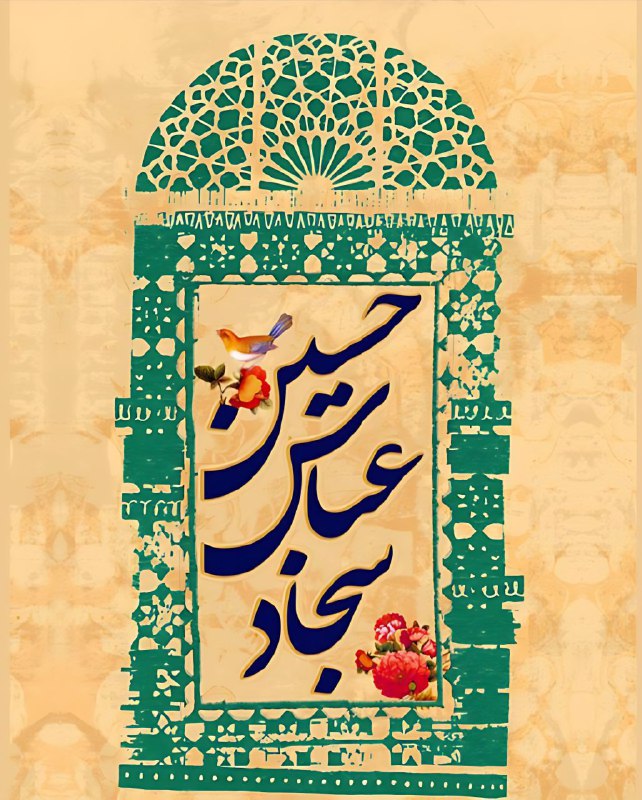 حسین
عباس
سجاد